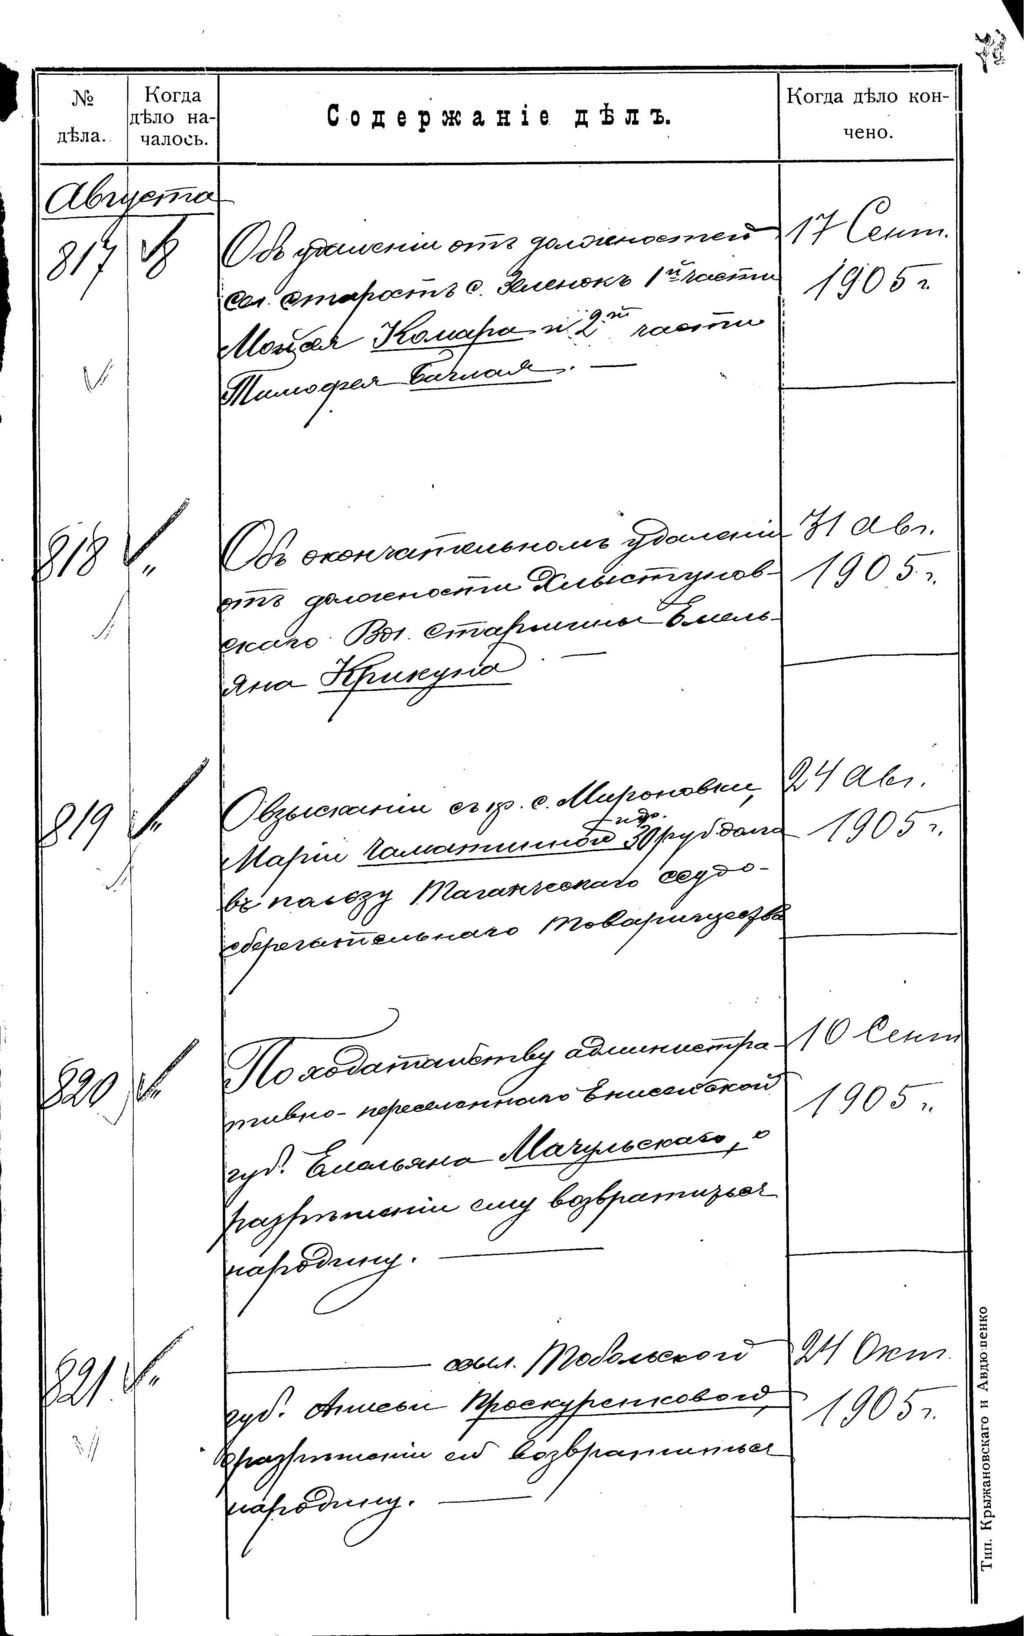 № дѣла.
Когда дѣло началось.
Содержаніе дѣлъ.
Когда дѣло кончено.
Августа
817 8 Объ удаленіи отъ должностей 17 Сент.
сел. старостъ с. Зеленокъ 1й части 1905 г.
Мойсея Комара и 2й части
Тимофея Баглая. —
818 „ Объ окончательномъ удаленіи 31 Авг.
отъ должности Хлыстунов- 1905 г.
скаго Вол. Старшины Емель-
яна Крикуна —
819 „ О взысканіи съ кр. с. Мироновки, 24 Авг.
Маріи 30 руб долга 1905 г.
въ пользу Таганческаго ссудо-
сберегательнаго товарищества
820 „ По ходатайству администра- 10 Сент
тивно-переселеннаго Енисейской 1905 г.
губ. Емельяна Мачульскаго, о
разрѣшеніи ему возвратиться
народину. —
821 „ — ссыл. Тобольской 24 Окт.
губ. Анисьи Проскуренковой, 1905 г.
о разрѣшеніи ей возвратиться
народину. —
Тип. Крыжановскаго и Авдюшенко